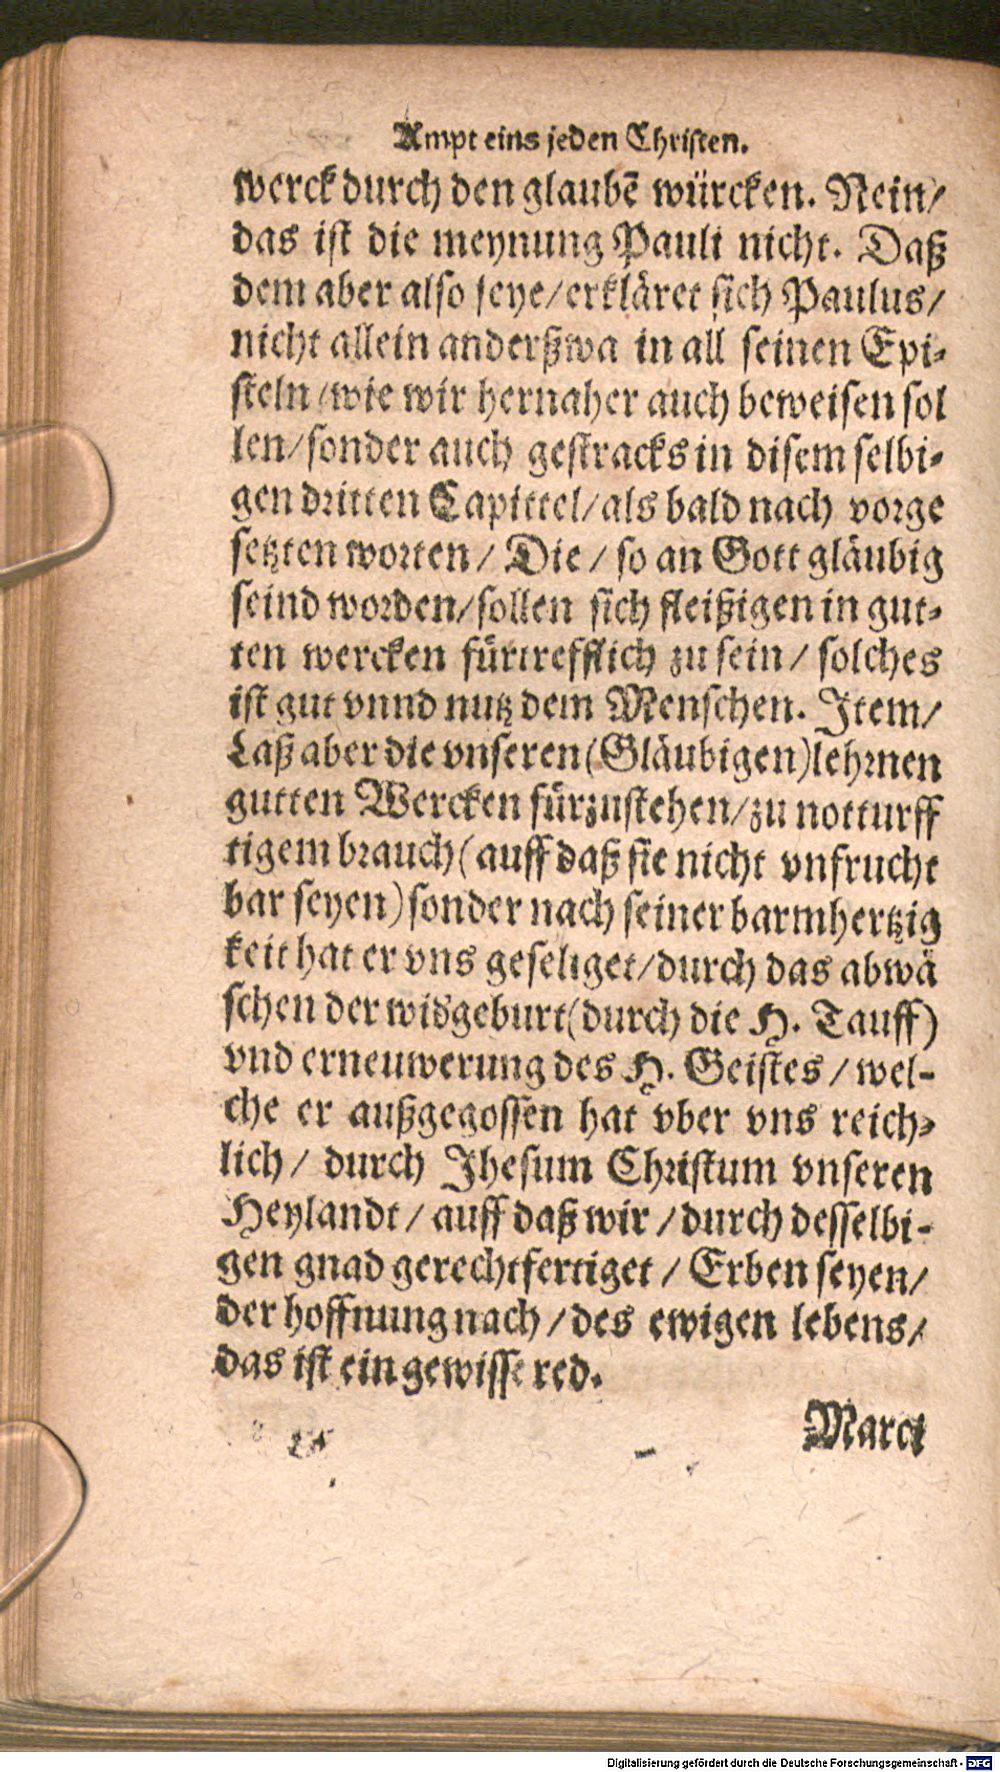 Ampt eins jeden Christen.
werck durch den glaubē würcken. Nein/
das ist die meynung Pauli nicht. Daß
dem aber also seye/erkläret sich Paulus/
nicht allein anderßwa in all seinen Epi-
steln/wie wir hernaher auch beweisen sol
len/sonder auch gestracks in disem selbi-
gen dritten Capittel/als bald nach vorge
setzten worten/ Die/ so an Gott gläubig
seind worden/sollen sich fleißigen in gut-
ten wercken fürtrefflich zu sein/ solches
ist gut vnnd nutz dem Menschen. Item/
Laß aber die vnseren(Gläubigen)lehrnen
gutten Wercken fürzustehen/zu notturff
tigem brauch(auff daß sie nicht vnfrucht
bar seyen)sonder nach seiner barmhertzig
keit hat er vns geseliget/durch das abwä
schen der widgeburt(durch die H. Tauff)
vnd erneuwerung des H. Geistes/ wel-
che er außgegossen hat vber vns reich-
lich/ durch Jhesum Christum vnseren
Heylandt/ auff daß wir/ durch desselbi-
gen gnad gerechtfertiget/ Erben seyen/
der hoffnung nach/ des ewigen lebens/
das ist ein gewisse red.
Marci
Digitalisierung gefördert durch die Deutsche Forschungsgemeinschaft - DFG